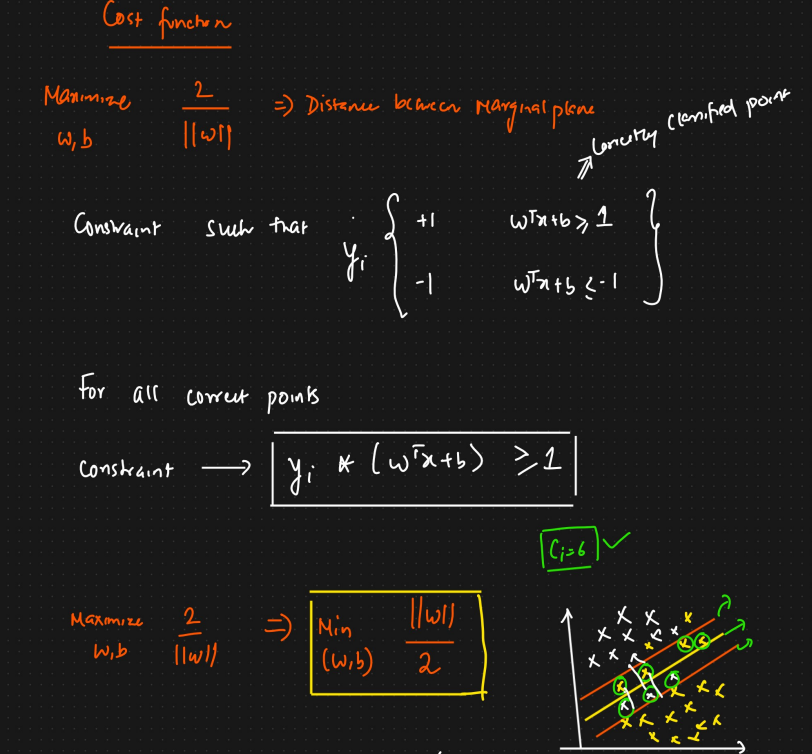 Cost function
Maximize w,b 2/||w|| => Distance between Marginal plane
Correctly classified point
Constraint such that yᵢ { +1 wᵀx+b ≥ 1
-1 wᵀx+b ≤ -1 }
For all correct points
Constraint → yᵢ * (wᵀx+b) ≥ 1
Cᵢ=6 ✓
Maximize w,b 2/||w|| => Min (w,b) ||w||/2